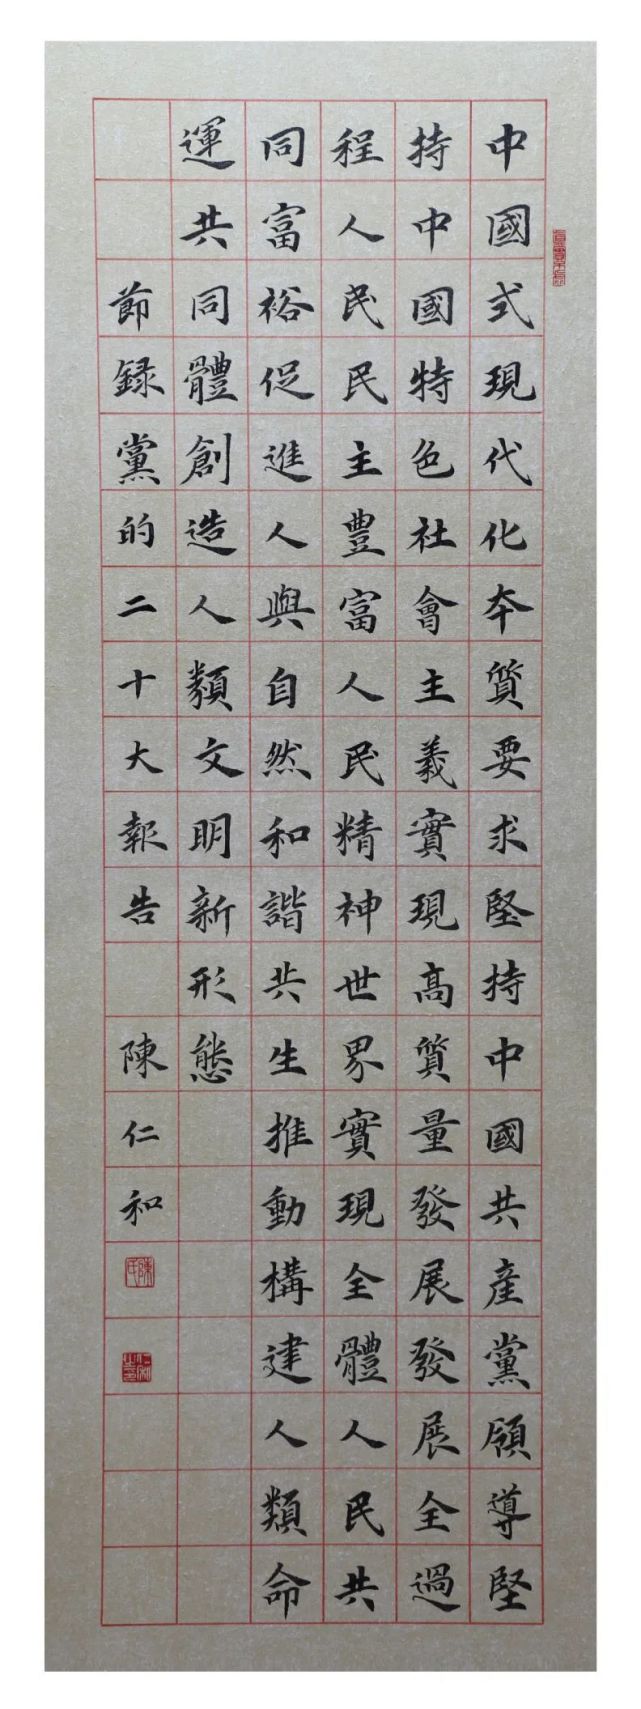 中國式現代化本質要求堅持中國共產黨領導堅
持中國特色社會主義實現高質量發展發展全過
程人民民主豐富人民精神世界實現全體人民共
同富裕促進人與自然和諧共生推動構建人類命
運共同體創造人類文明新形態
節録黨的二十大報告 陳仁和
陳氏
仁和之印